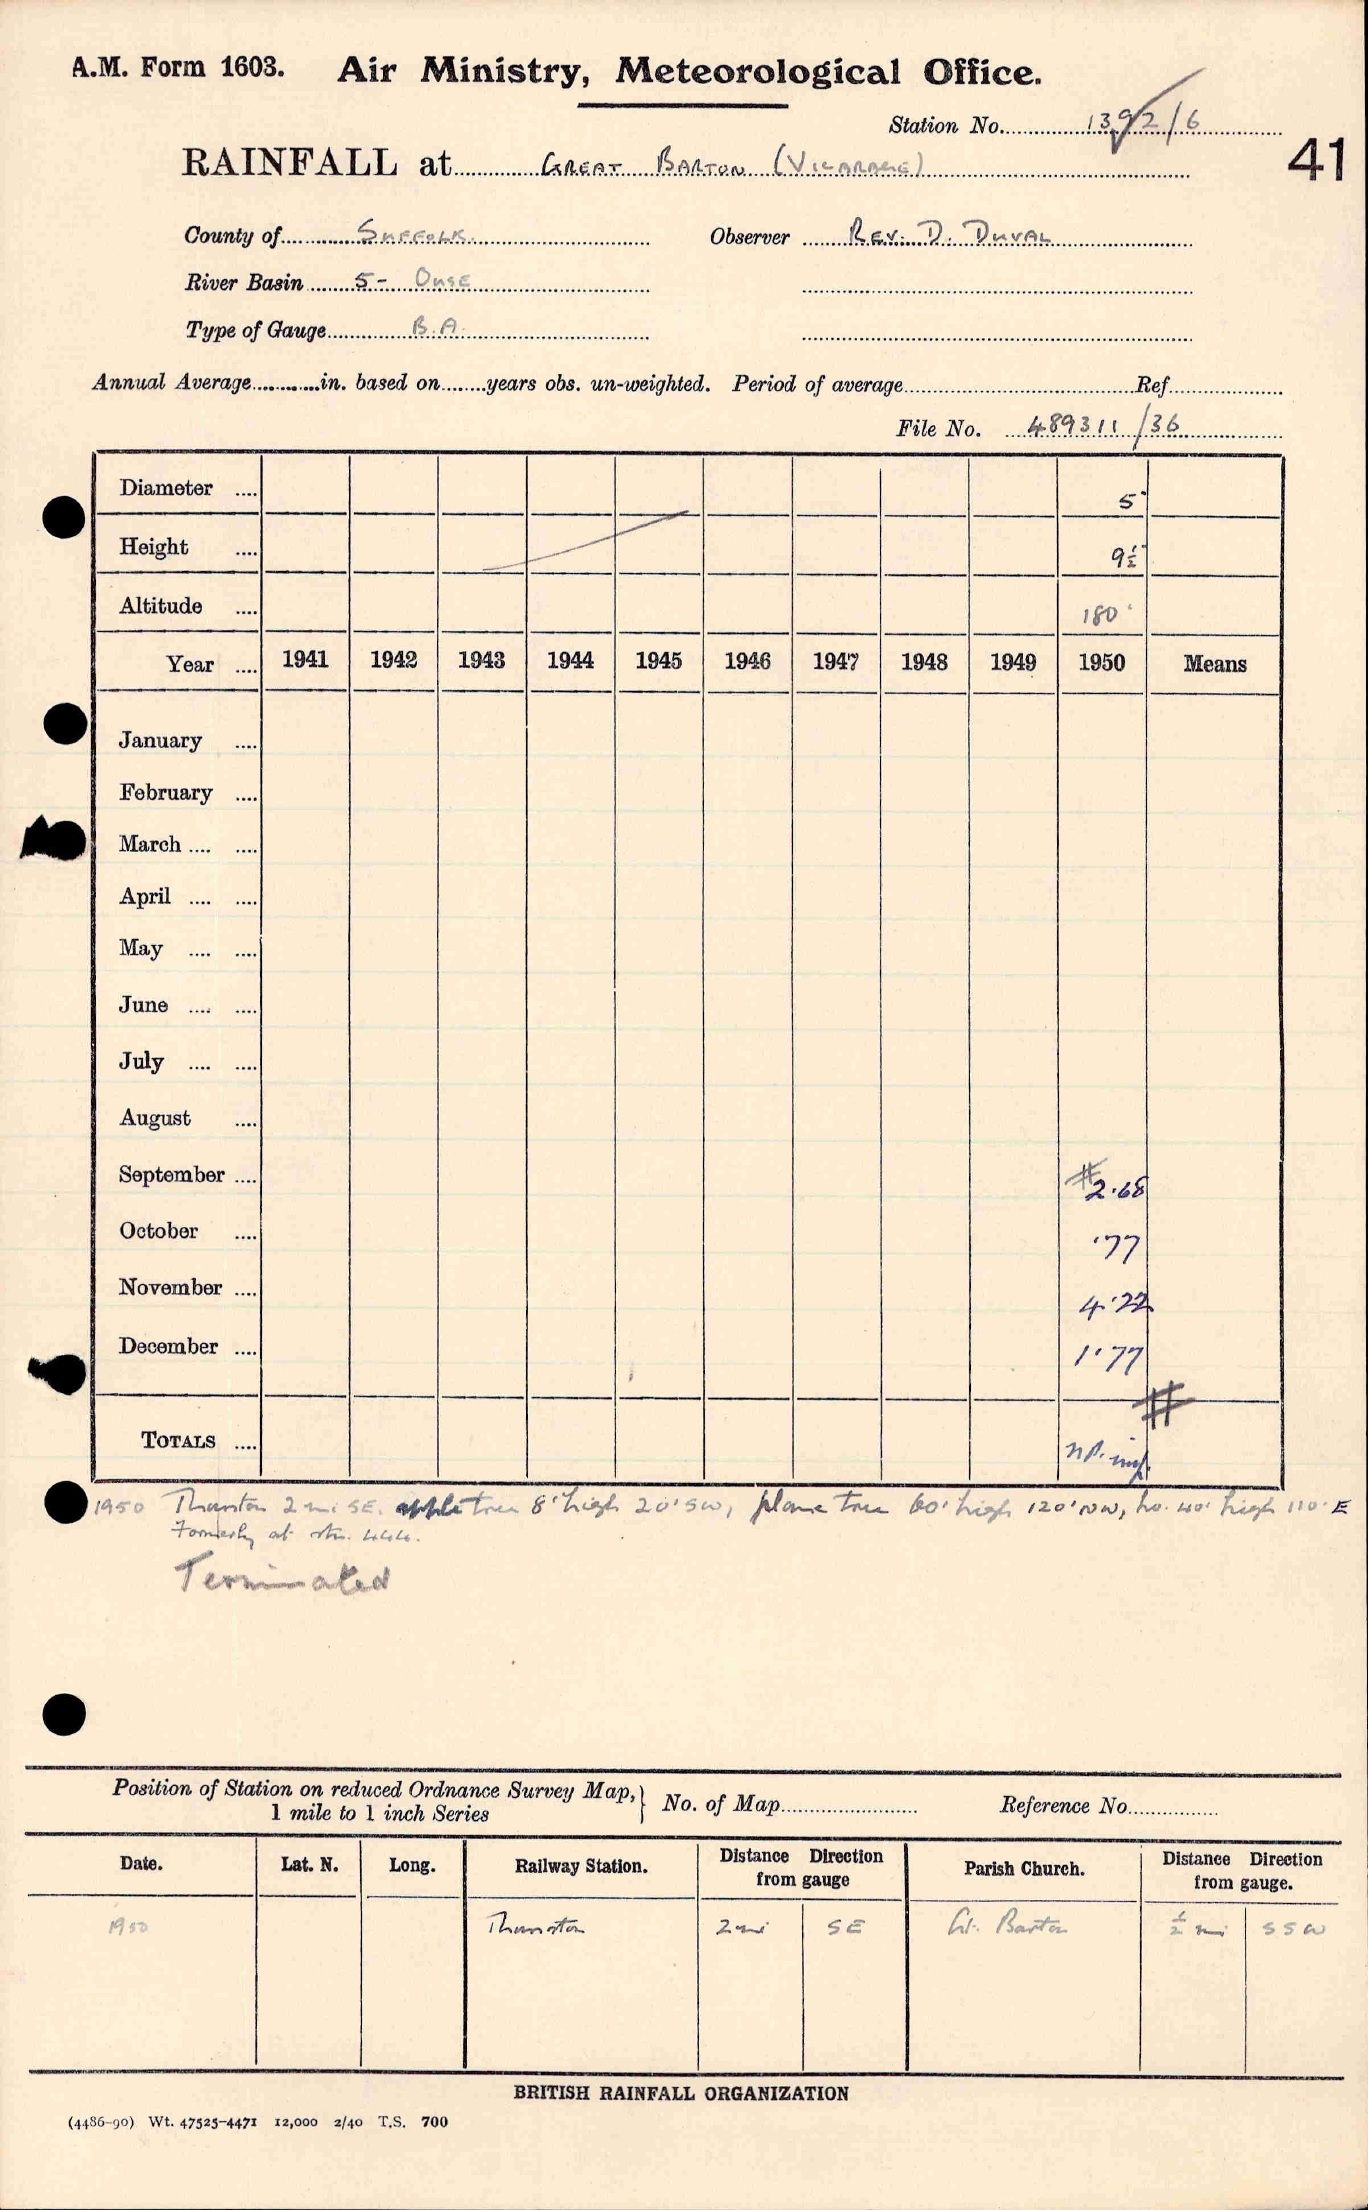 A.M. Form 1603. Air Ministry, Meteorological Office.
Station No. 1392/6
RAINFALL at GREAT BARTON (VICARAGE)
41
County of SUFFOLK Observer REV. D. DUVAL
River Basin 5- OUSE
Type of Gauge B.A.
Annual Average in. based on years obs. un-weighted. Period of average Ref
File No. 489311/36
Diameter .... 5"
Height .... 9½"
Altitude .... 180'
Year .... 1941 1942 1943 1944 1945 1946 1947 1948 1949 1950 Means
January ....
February ....
March .... ....
April .... ....
May .... ....
June .... ....
July .... ....
August ....
September .... # 2.68
October .... .77
November .... 4.22
December .... 1.77
#
TOTALS ....
1950 Thurston 2 mi SE. apple tree 8' high 20' SW, plane tree 60' high 120' NW, ho. 40' high 110' E
Formerly at stn. 444.
Terminated
Position of Station on reduced Ordnance Survey Map, } No. of Map Reference No.
1 mile to 1 inch Series
Date. Lat. N. Long. Railway Station. Distance Direction from gauge Parish Church. Distance Direction from gauge.
1950 Thurston 2 mi SE Gt. Barton ½ mi SSW
BRITISH RAINFALL ORGANIZATION
(4486-90) Wt. 47525-4471 12,000 2/40 T.S. 700